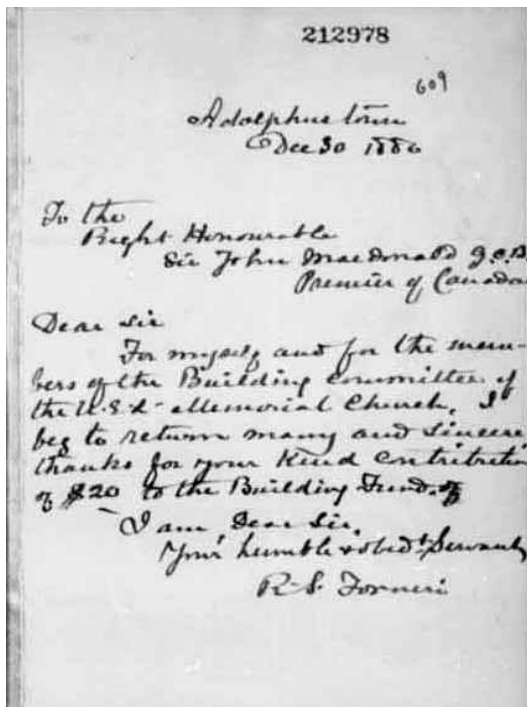 212978
609
Adolphustown
Dec 30 1886
To the
Right Honourable
Sir John Macdonald G.C.B
Premier of Canada
Dear Sir
For myself and for the mem-
bers of the Building Committee of
the U.E.L. Memorial Church, I
beg to return many and sincere
thanks for your kind contribution
of $20 to the Building Fund.
I am Dear Sir,
Your humble & obedt Servant
R. S. Forneri